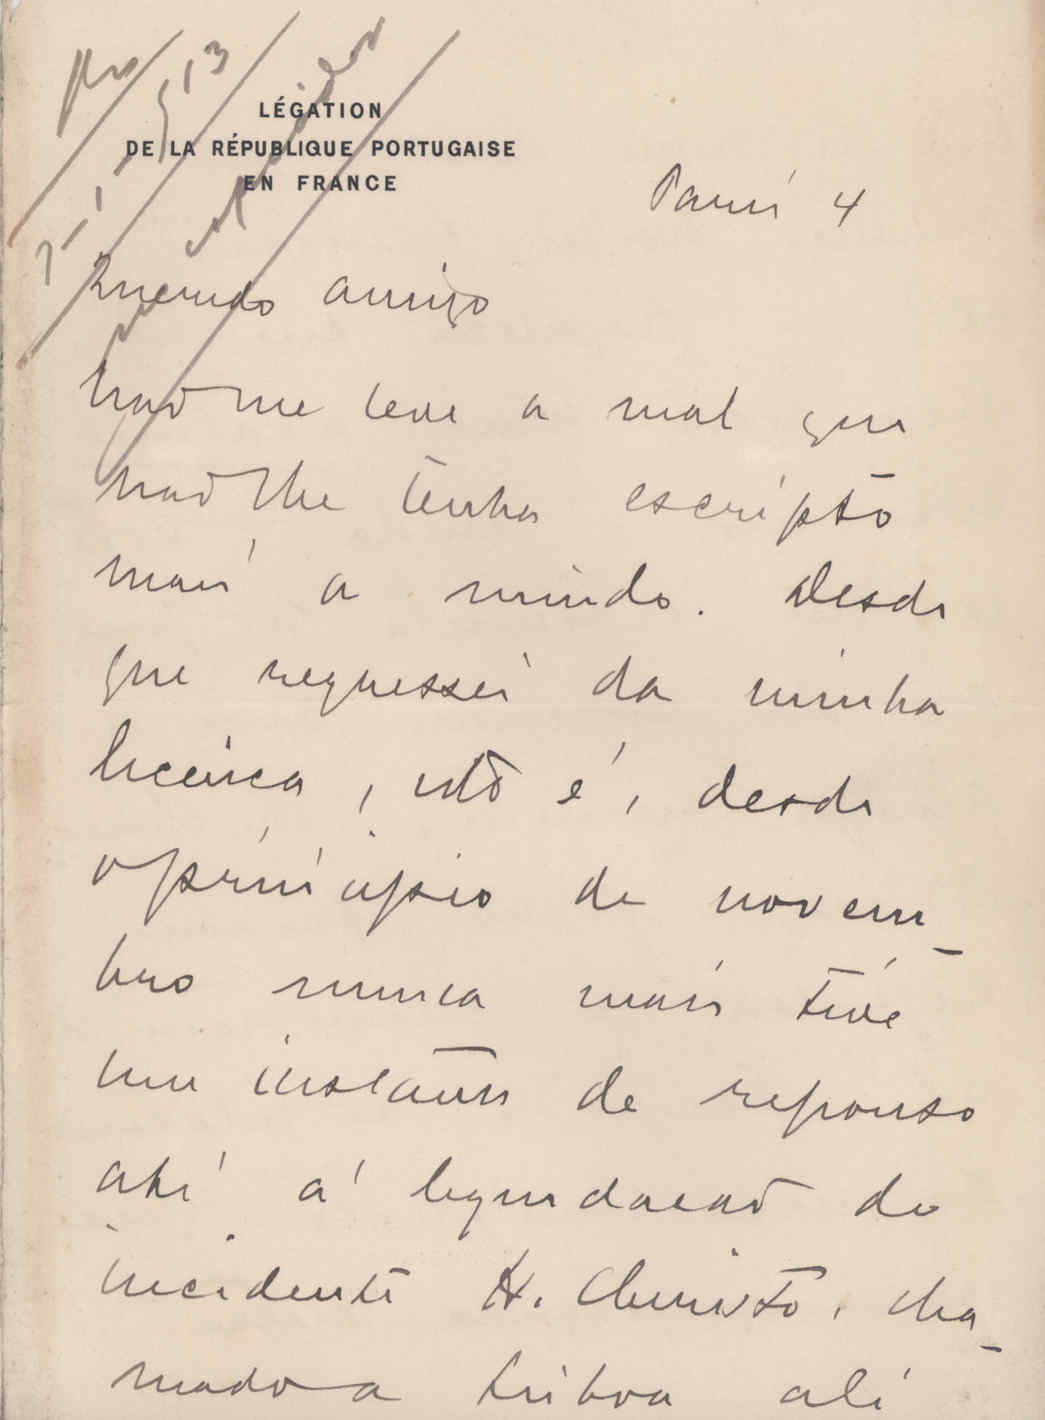 LÉGATION
DE LA RÉPUBLIQUE PORTUGAISE
EN FRANCE
Paris 4
Querido amigo
Não me leve a mal que
não lhe tenha escripto
mais a miudo. Desde
que regressei da minha
licença, isto é, desde
o principio de novem-
bro nunca mais tive
um instante de repouso
até á liquidação do
incidente H. Christo. Cha-
mado a Lisboa ali